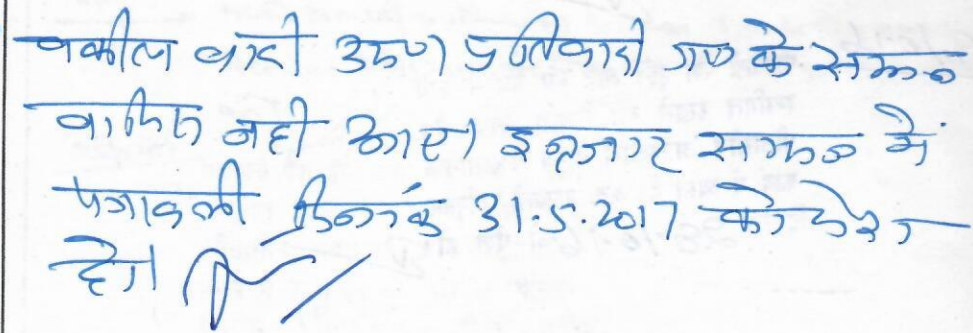 वकील वादी उप० प्रतिवादी गण के समन
वापिस नही आए। इन्तजार समन मे
पत्रावली दिनांक 31.5.2017 को पेश
हो।